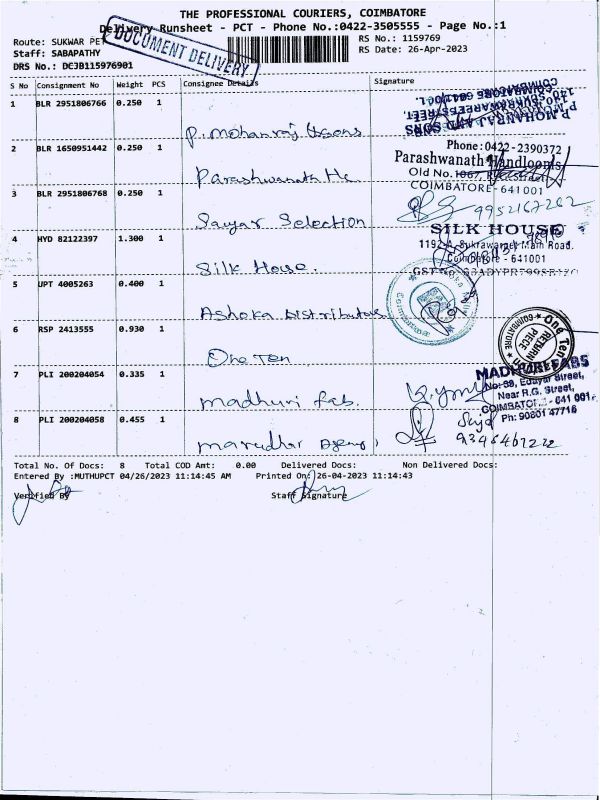 THE PROFESSIONAL COURIERS, COIMBATORE
Delivery Runsheet - PCT - Phone No.:0422-3505555 - Page No.:1
Route: SUKWAR PET
Staff: SABAPATHY
DRS No.: DCJB115976901
DOCUMENT DELIVERY
RS No.: 1159769
RS Date: 26-Apr-2023
S No Consignment No Weight PCS Consignee Details Signature
1 BLR 2951806766 0.250 1
P. Mohanraj & sons
P.MOHANRAJ AND SONS
COIMBATORE 641001.
2 BLR 1650951442 0.250 1
Parashwanath He
Phone: 0422-2390372
Parashwanath Handlooms
Old No.
COIMBATORE-641001
3 BLR 2951806768 0.250 1
Sagar Selection
9952167262
4 HYD 82122397 1.300 1
Silk House.
SILK HOUSE
1192-A, Sukrawarpet Main Road.
Coimbatore - 641001
5 UPT 4005263 0.400 1
Ashoka Distributors
Coimbatore
6 RSP 2413555 0.930 1
One Ten
One Ten
RETURN PIECE
COIMBATORE
7 PLI 200204054 0.335 1
madhuri fab.
MADHURI FABS
No: 39, Edayar Street,
Near R.G. Street,
COIMBATORE - 641 001.
Ph: 90801 47716
8 PLI 200204058 0.455 1
marudhar Agency
Total No. Of Docs: 8 Total COD Amt: 0.00 Delivered Docs: Non Delivered Docs:
Entered By :MUTHUPCT 04/26/2023 11:14:45 AM Printed On: 26-04-2023 11:14:43
Verified By Staff Signature